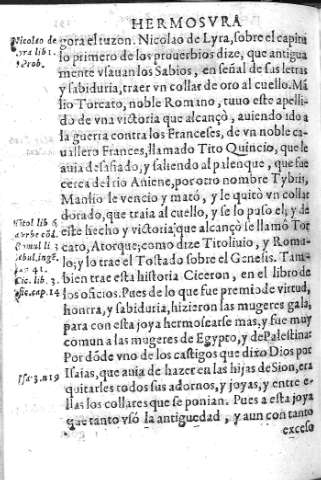 HERMOSVRA
Nicolao de
Lyra lib 1.
Prob.
gora el tuzon. Nicolao de Lyra, sobre el capitu
lo primero de los prouerbios dize, que antigua
mente vsauan los Sabios, en señal de sus letras
y sabiduria, traer vn collar de oro al cuello. Má
lio Torcato, noble Romano, tuuo este apelli-
do de vna victoria que alcançò, auiendo ido a
la guerra contra los Franceses, de vn noble ca-
uallero Frances, llamado Tito Quincio, que le
auia desafiado, y saliendo al palenque, que fue
cerca del rio Aniene, por otro nombre Tybri,
Manlio le vencio y mató, y le quitò vn collar
dorado, que traia al cuello, y se lo puso el; y de
este hecho y victoria que alcançò se llamò Tor
cato, Atorque; como dize Titoliuio, y Romu-
lo; y lo trae el Tostado sobre el Genesis. Tam-
bien trae esta historia Ciceron, en el libro de
los oficios. Pues de lo que fue premio de virtud,
honra, y sabiduria, hizieron las mugeres gala,
para con esta joya hermosearse mas, y fue muy
comun a las mugeres de Egypto, y de Palestina:
Por dõde vno de los castigos que dixo Dios por
Isaias, que auia de hazer en las hijas de Sion, era
quitarles todos sus adornos, y joyas, y entre e-
llas los collares que se ponian. Pues a esta joya
que tanto vsó la antiguedad, y aun con tanto
exceso
lib. 6
lib. 3
cap. 41.
Cic. lib. 3.
cap. 14
Isa. 3. n 19